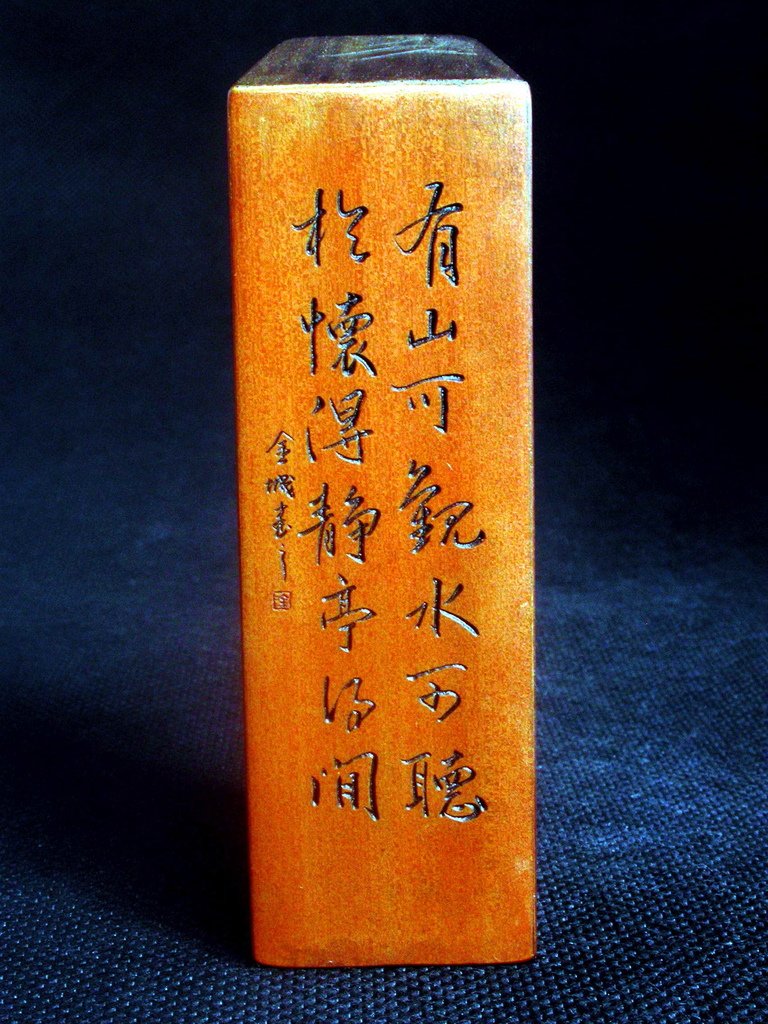 有山可觀水可聽
於懷得靜亭得閒
金城書之
金